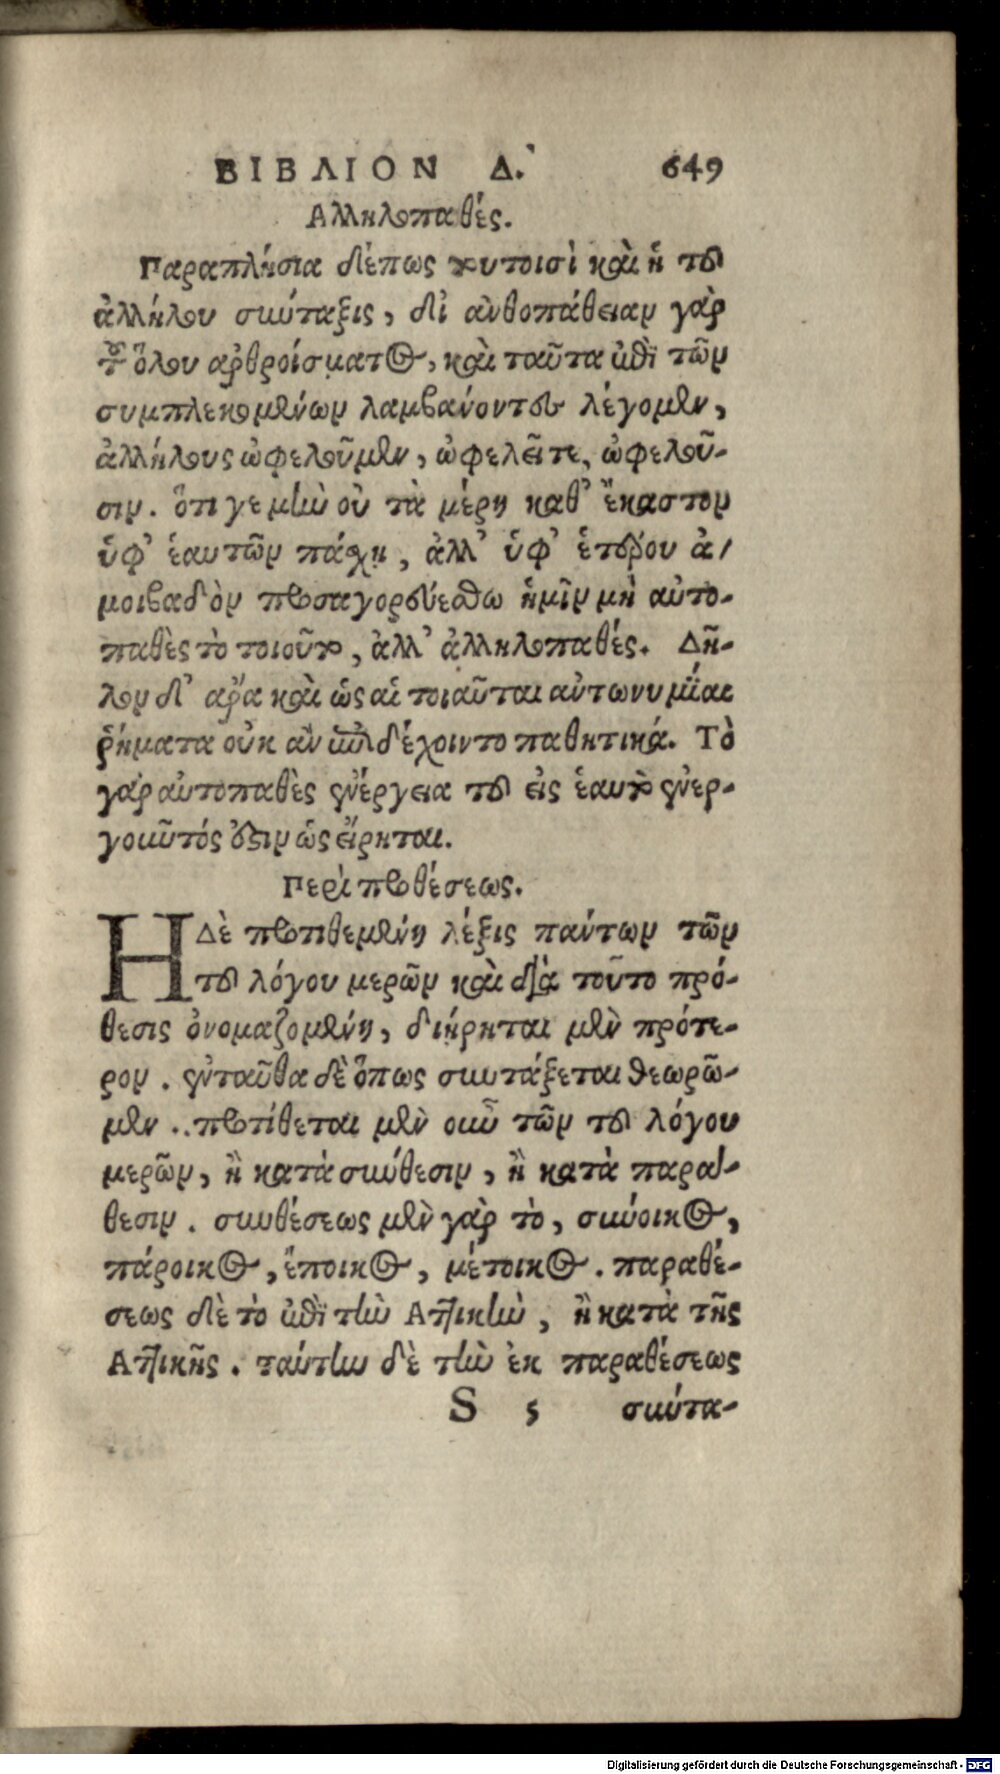 ΒΙΒΛΙΟΝ Δ.' 649
Αλληλοπαθές.
Παραπλήσια δέπως τουτοισὶ καὶ ἡ τοῦ
ἀλλήλου σύνταξις, δι' ἀνθοπάθειαν γὰρ
τοῦ ὅλου ἀθροίσματος, καὶ ταῦτα ἐπὶ τῶν
συμπλεκομένων λαμβάνοντες λέγομεν,
ἀλλήλους ὠφελοῦμεν, ὠφελεῖτε, ὠφελοῦ-
σιν. ὅτι γε μὴν οὐ τὰ μέρη καθ' ἕκαστον
ὑφ' ἑαυτῶν πάσχει, ἀλλ' ὑφ' ἑτέρου ἀ-
μοιβαδὸν προσαγορευέσθω ἡμῖν μὴ αὐτο-
παθὲς τὸ τοιοῦτο, ἀλλ' ἀλληλοπαθές. Δῆ-
λον δ' ἄρα καὶ ὡς αἱ τοιαῦται ἀντωνυμίαι
ῥήματα οὐκ ἂν ἐπιδέχοιντο παθητικά. Τὸ
γὰρ αὐτοπαθὲς ἐνέργεια τοῦ εἰς ἑαυτὸ ἐνερ-
γοῦντός ἐστιν ὡς εἴρηται.
Περὶ προθέσεως.
Η Δὲ προτιθεμένη λέξις πάντων τῶν
τοῦ λόγου μερῶν καὶ διὰ τοῦτο πρό-
θεσις ὀνομαζομένη, διῄρηται μὲν πρότε-
ρον. ἐνταῦθα δὲ ὅπως συντάξεται θεωρῶ-
μεν.. προτίθεται μὲν οὖν τῶν τοῦ λόγου
μερῶν, ἢ κατὰ σύνθεσιν, ἢ κατὰ παρά-
θεσιν. συνθέσεως μὲν γὰρ τὸ, σύνοικος,
πάροικος, ἔποικος, μέτοικος. παραθέ-
σεως δὲ τὸ ἐπὶ τὴν Ἀττικὴν, ἢ κατὰ τῆς
Ἀττικῆς. ταύτην δὲ τὴν ἐκ παραθέσεως
S 5 σύντα-
Digitalisierung gefördert durch die Deutsche Forschungsgemeinschaft - DFG